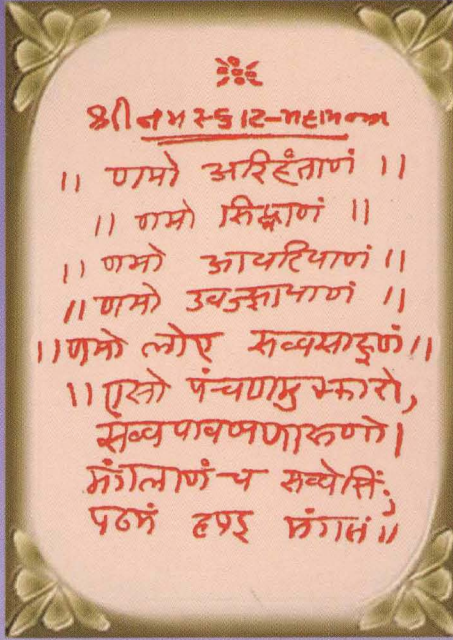 श्री नमस्कार-महामन्त्र
।। णमो अरिहंताणं ।।
।। णमो सिद्धाणं ।।
।। णमो आयरियाणं ।।
।। णमो उवज्झायाणं ।।
।। णमो लोए सव्वसाहूणं ।।
।। एसो पंचणमुक्कारो,
सव्वपावप्पणासणो।
मंगलाणं च सव्वेसिं;
पढमं हवइ मंगलं ।।